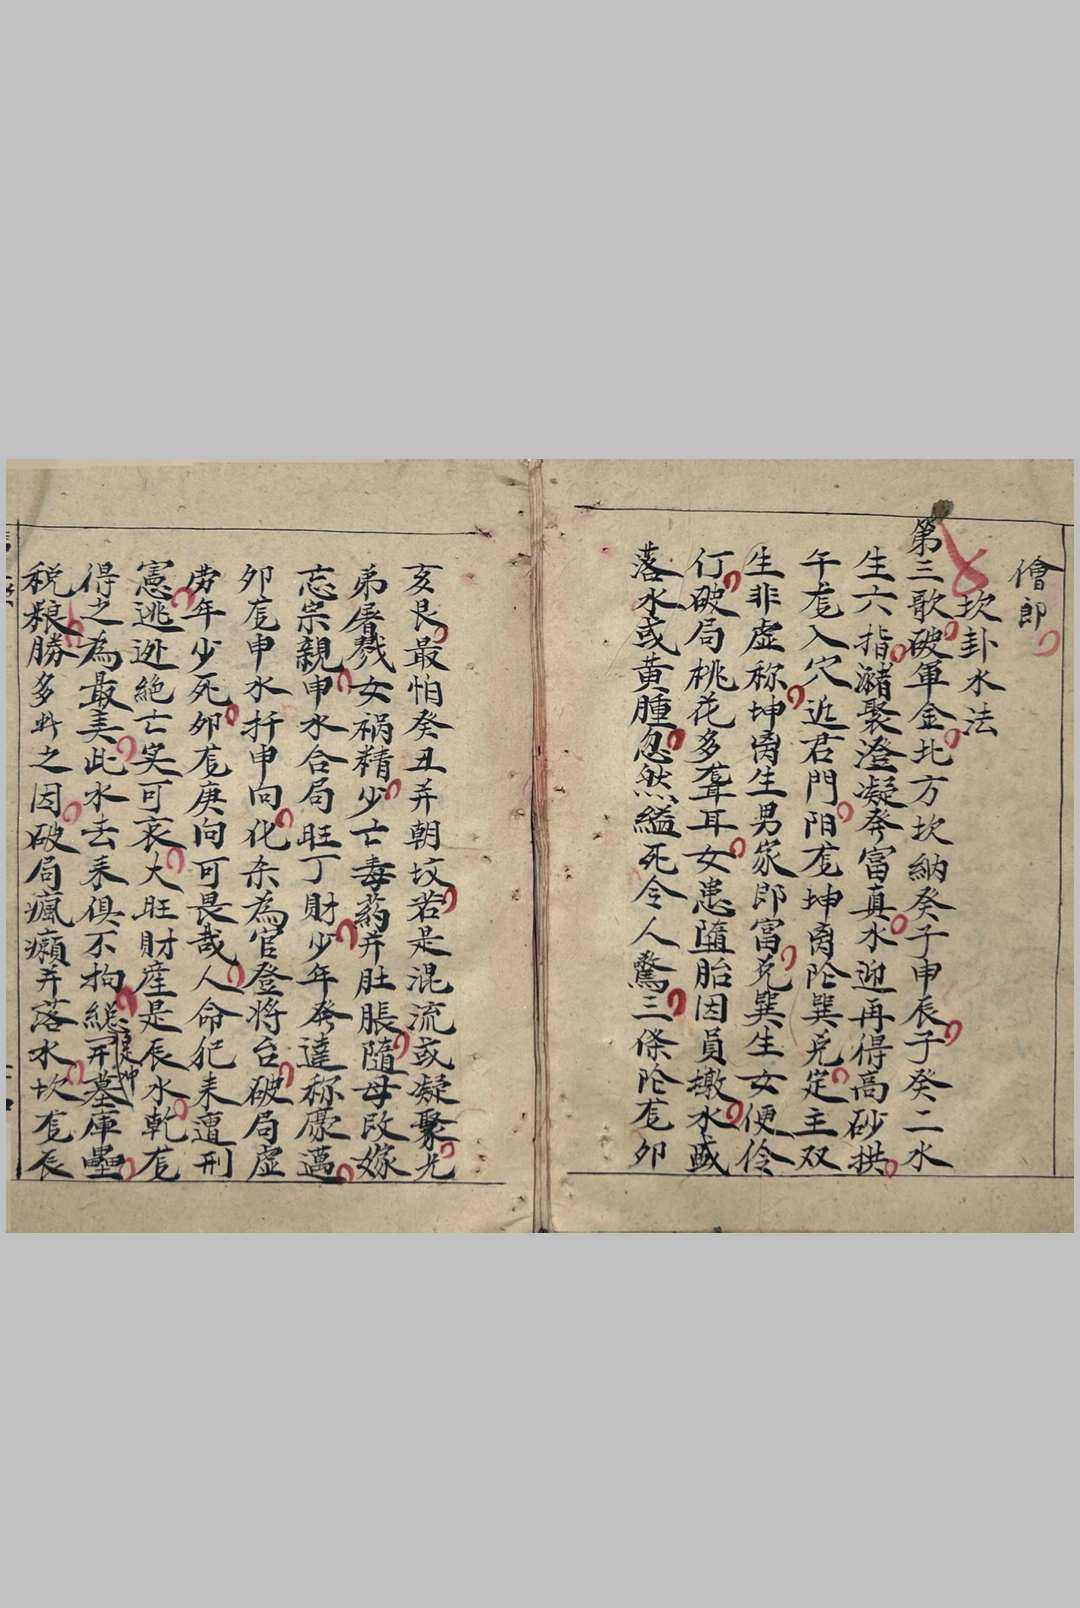 儈郎
坎卦水法
第三歌破軍金北方坎納癸子申辰子癸二水
生六指潴聚澄凝發富真水迎再得高砂拱
午龙入穴近君門阳龙坤离陀巽兑定主双
生非虚称坤离生男家即富兑巽生女便伶
仃破局桃花多聋耳女患隨胎因員墩水盛
落水或黄腫忽然縊死令人驚三條陀龙卯
亥艮最怕癸丑弄朝坟若是混流或凝聚兄
弟屠戮女禍精少亡毒药并肚脹隨母改嫁
忘宗親申水合局旺丁財少年發達称豪邁
卯龙申水扦申向化杀為官登将台破局虚
劳年少死卯龙庚向可畏哉人命犯耒遭刑
憲逃迯絶亡実可哀大旺財産是辰水乾龙
得之為最美此水去耒俱不拘総开墓庫壘
税粮勝多之因破局瘋癩并落水坎龙辰